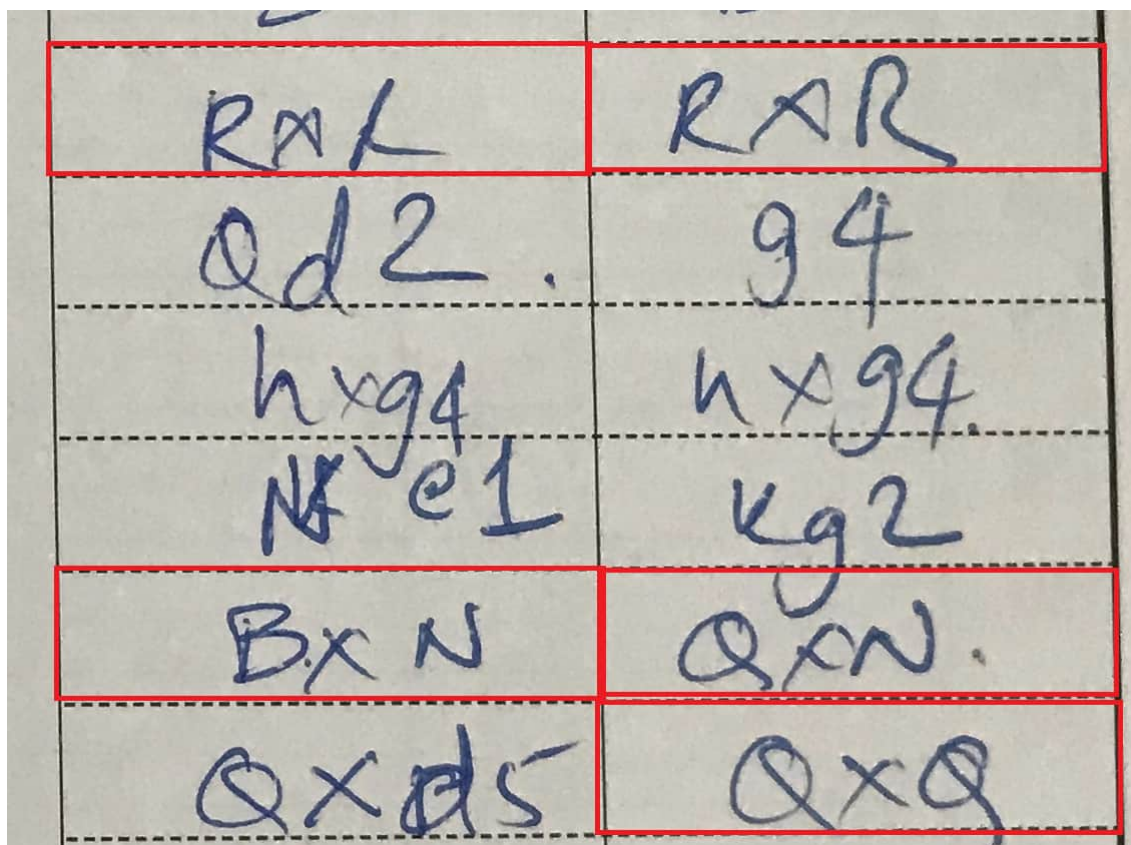 RxR RxR
Qd2. g4
hxg4 hxg4.
Ne1 Kg2
BxN QxN.
Qxd5 QxQ